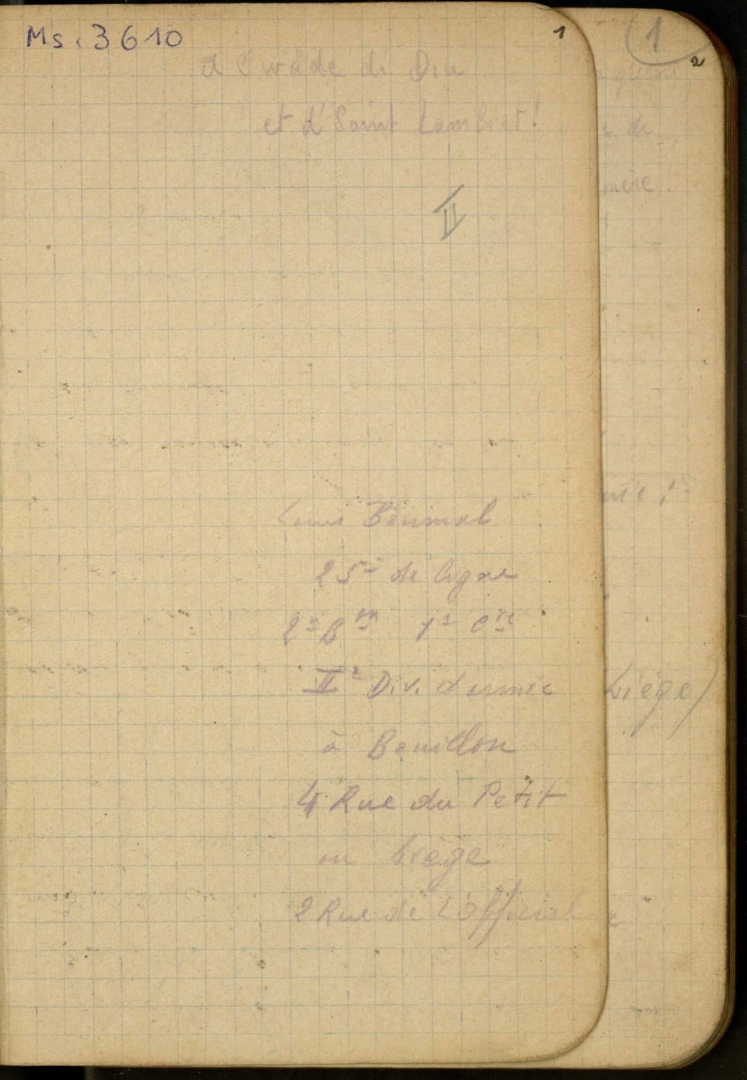 Ms. 3610
1
A l'wâde di Diu
et d'Saint Lambiet!
II
Louis Boumal
25e de ligne
2e Bon 1e Cie
IIe Div. d'armée
à Bouillon
4 Rue du Petit
ou Liège
2 Rue de l'Official
1
2
Liège)